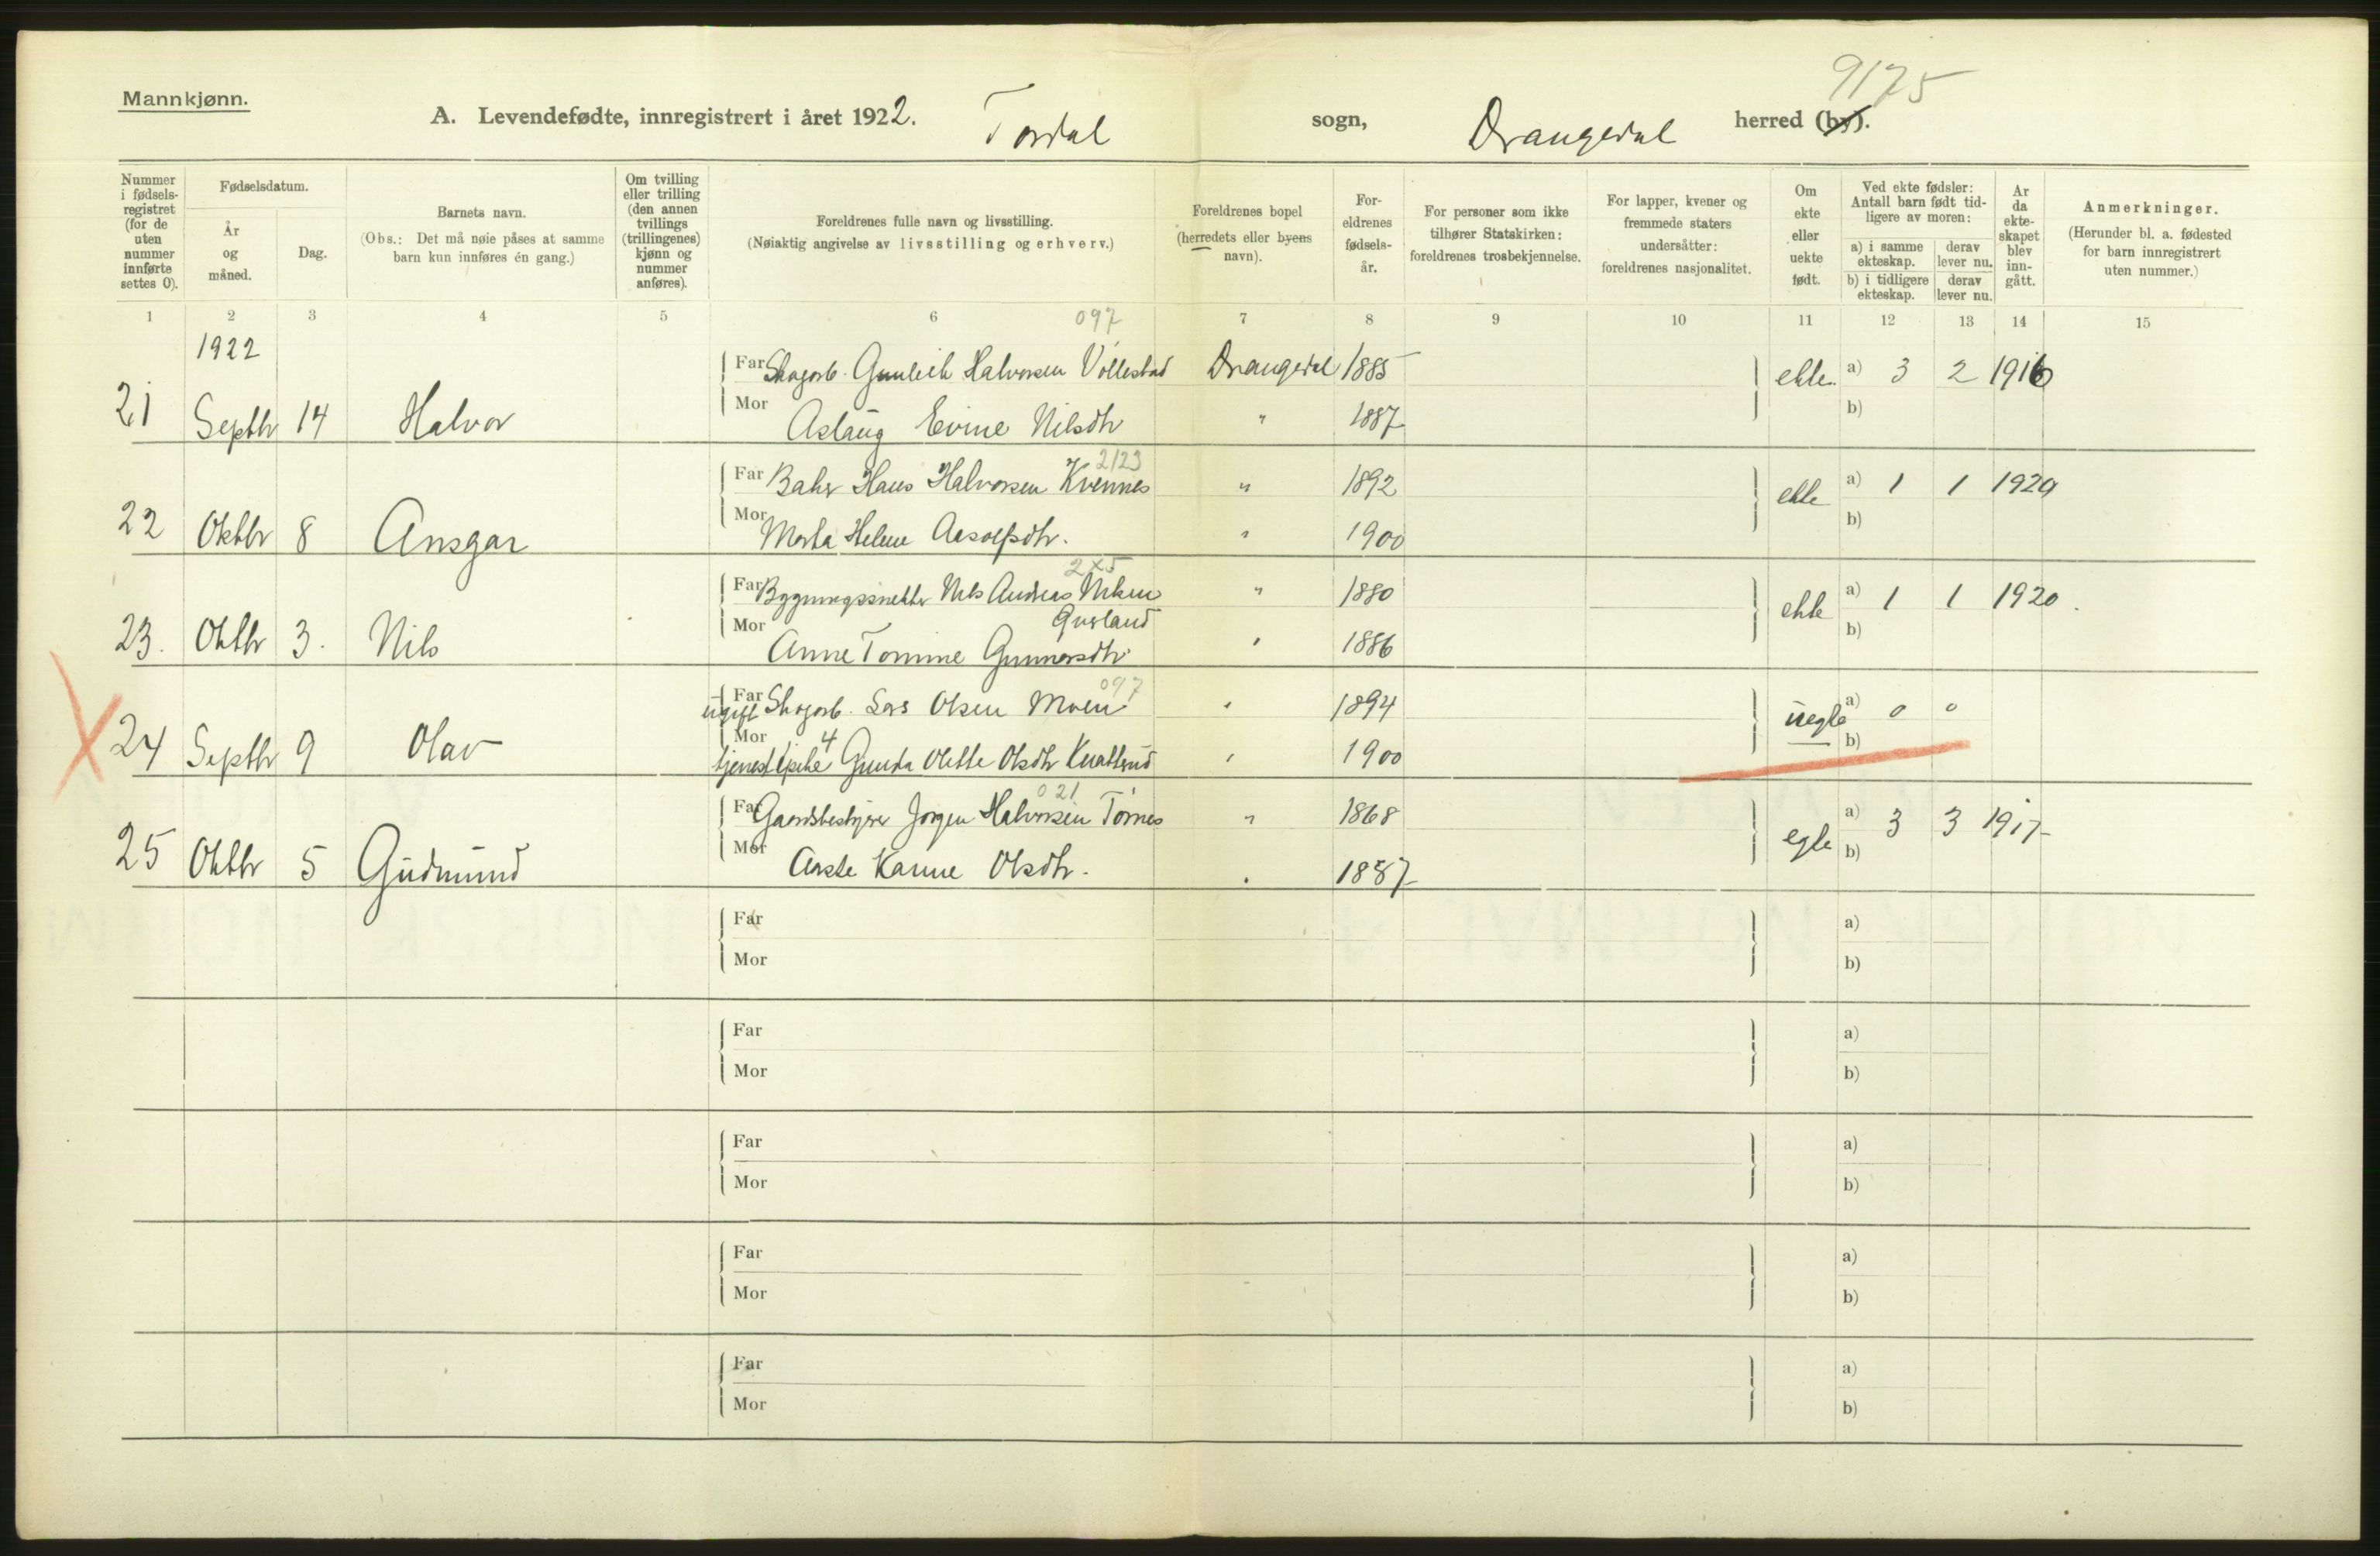 Mannkjønn.
A. Levendefødte, innregistrert i året 1922. Tordal sogn, Drangedal herred (by).
9175
Nummer i fødsels-registret (for de uten nummer innførte settes 0).
Fødselsdatum.
År og måned.
Dag.
Barnets navn.
(Obs.: Det må nøie påses at samme barn kun innføres én gang.)
Om tvilling eller trilling (den annen tvillings (trillingenes) kjønn og nummer anføres).
Foreldrenes fulle navn og livsstilling.
(Nøiaktig angivelse av livsstilling og erhverv.)
Foreldrenes bopel (herredets eller byens navn).
For-eldrenes fødsels-år.
For personer som ikke tilhører Statskirken: foreldrenes trosbekjennelse.
For lapper, kvener og fremmede staters undersåtter: foreldrenes nasjonalitet.
Om ekte eller uekte født.
Ved ekte fødsler: Antall barn født tid-ligere av moren:
a) i samme ekteskap.
derav lever nu.
b) i tidligere ekteskap.
derav lever nu.
År da ekte-skapet blev inn-gått.
Anmerkninger.
(Herunder bl. a. fødested for barn innregistrert uten nummer.)
1 2 3 4 5 6 7 8 9 10 11 12 13 14 15
1922
097
Far Skogarb. Gunleik Halvorsen Vøllestad Drangedal 1885 ekte. a) 3 2 1916
21 Septbr 14 Halvor
Mor Aslaug Evine Nilsdtr " 1887 b)
2123
Far Baker Hans Halvorsen Kvennes " 1892 ekte a) 1 1 1920
22 Oktbr 8 Ansgar
Mor Marta Helene Aasolfsdtr. " 1900 b)
2x5
Far Bygningssnekker Nils Andreas Nilsen " 1880 ekte a) 1 1 1920.
23. Oktbr 3. Nils
Mor Anne Tomine Gunnarsdtr " 1886 b)
097
Far ugift Skogarb. Lars Olsen Moen " 1894 uegte a) 0 0
24 Septbr 9 Olav
Mor tjenestepike 4 Gunda Olette Olsdtr " 1900 b)
021
Far Gaardsbestyrer Jørgen Halvorsen Tørnes " 1868 egte a) 3 3 1917
25 Oktbr 5 Gudmund
Mor Aaste Karine Olsdtr. " 1887 b)
Far a)
Mor b)
Far a)
Mor b)
Far a)
Mor b)
Far a)
Mor b)
Far a)
Mor b)